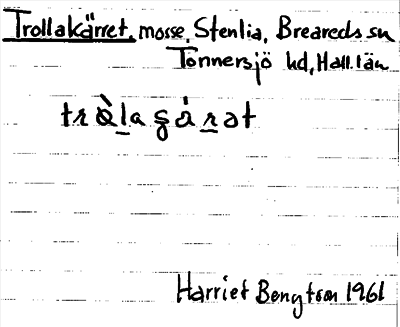 Trollakärret, mosse, Stenlia, Breareds sn
Tönnersjö hd, Hall. län
trὰlagárət
Harriet Bengtson 1961